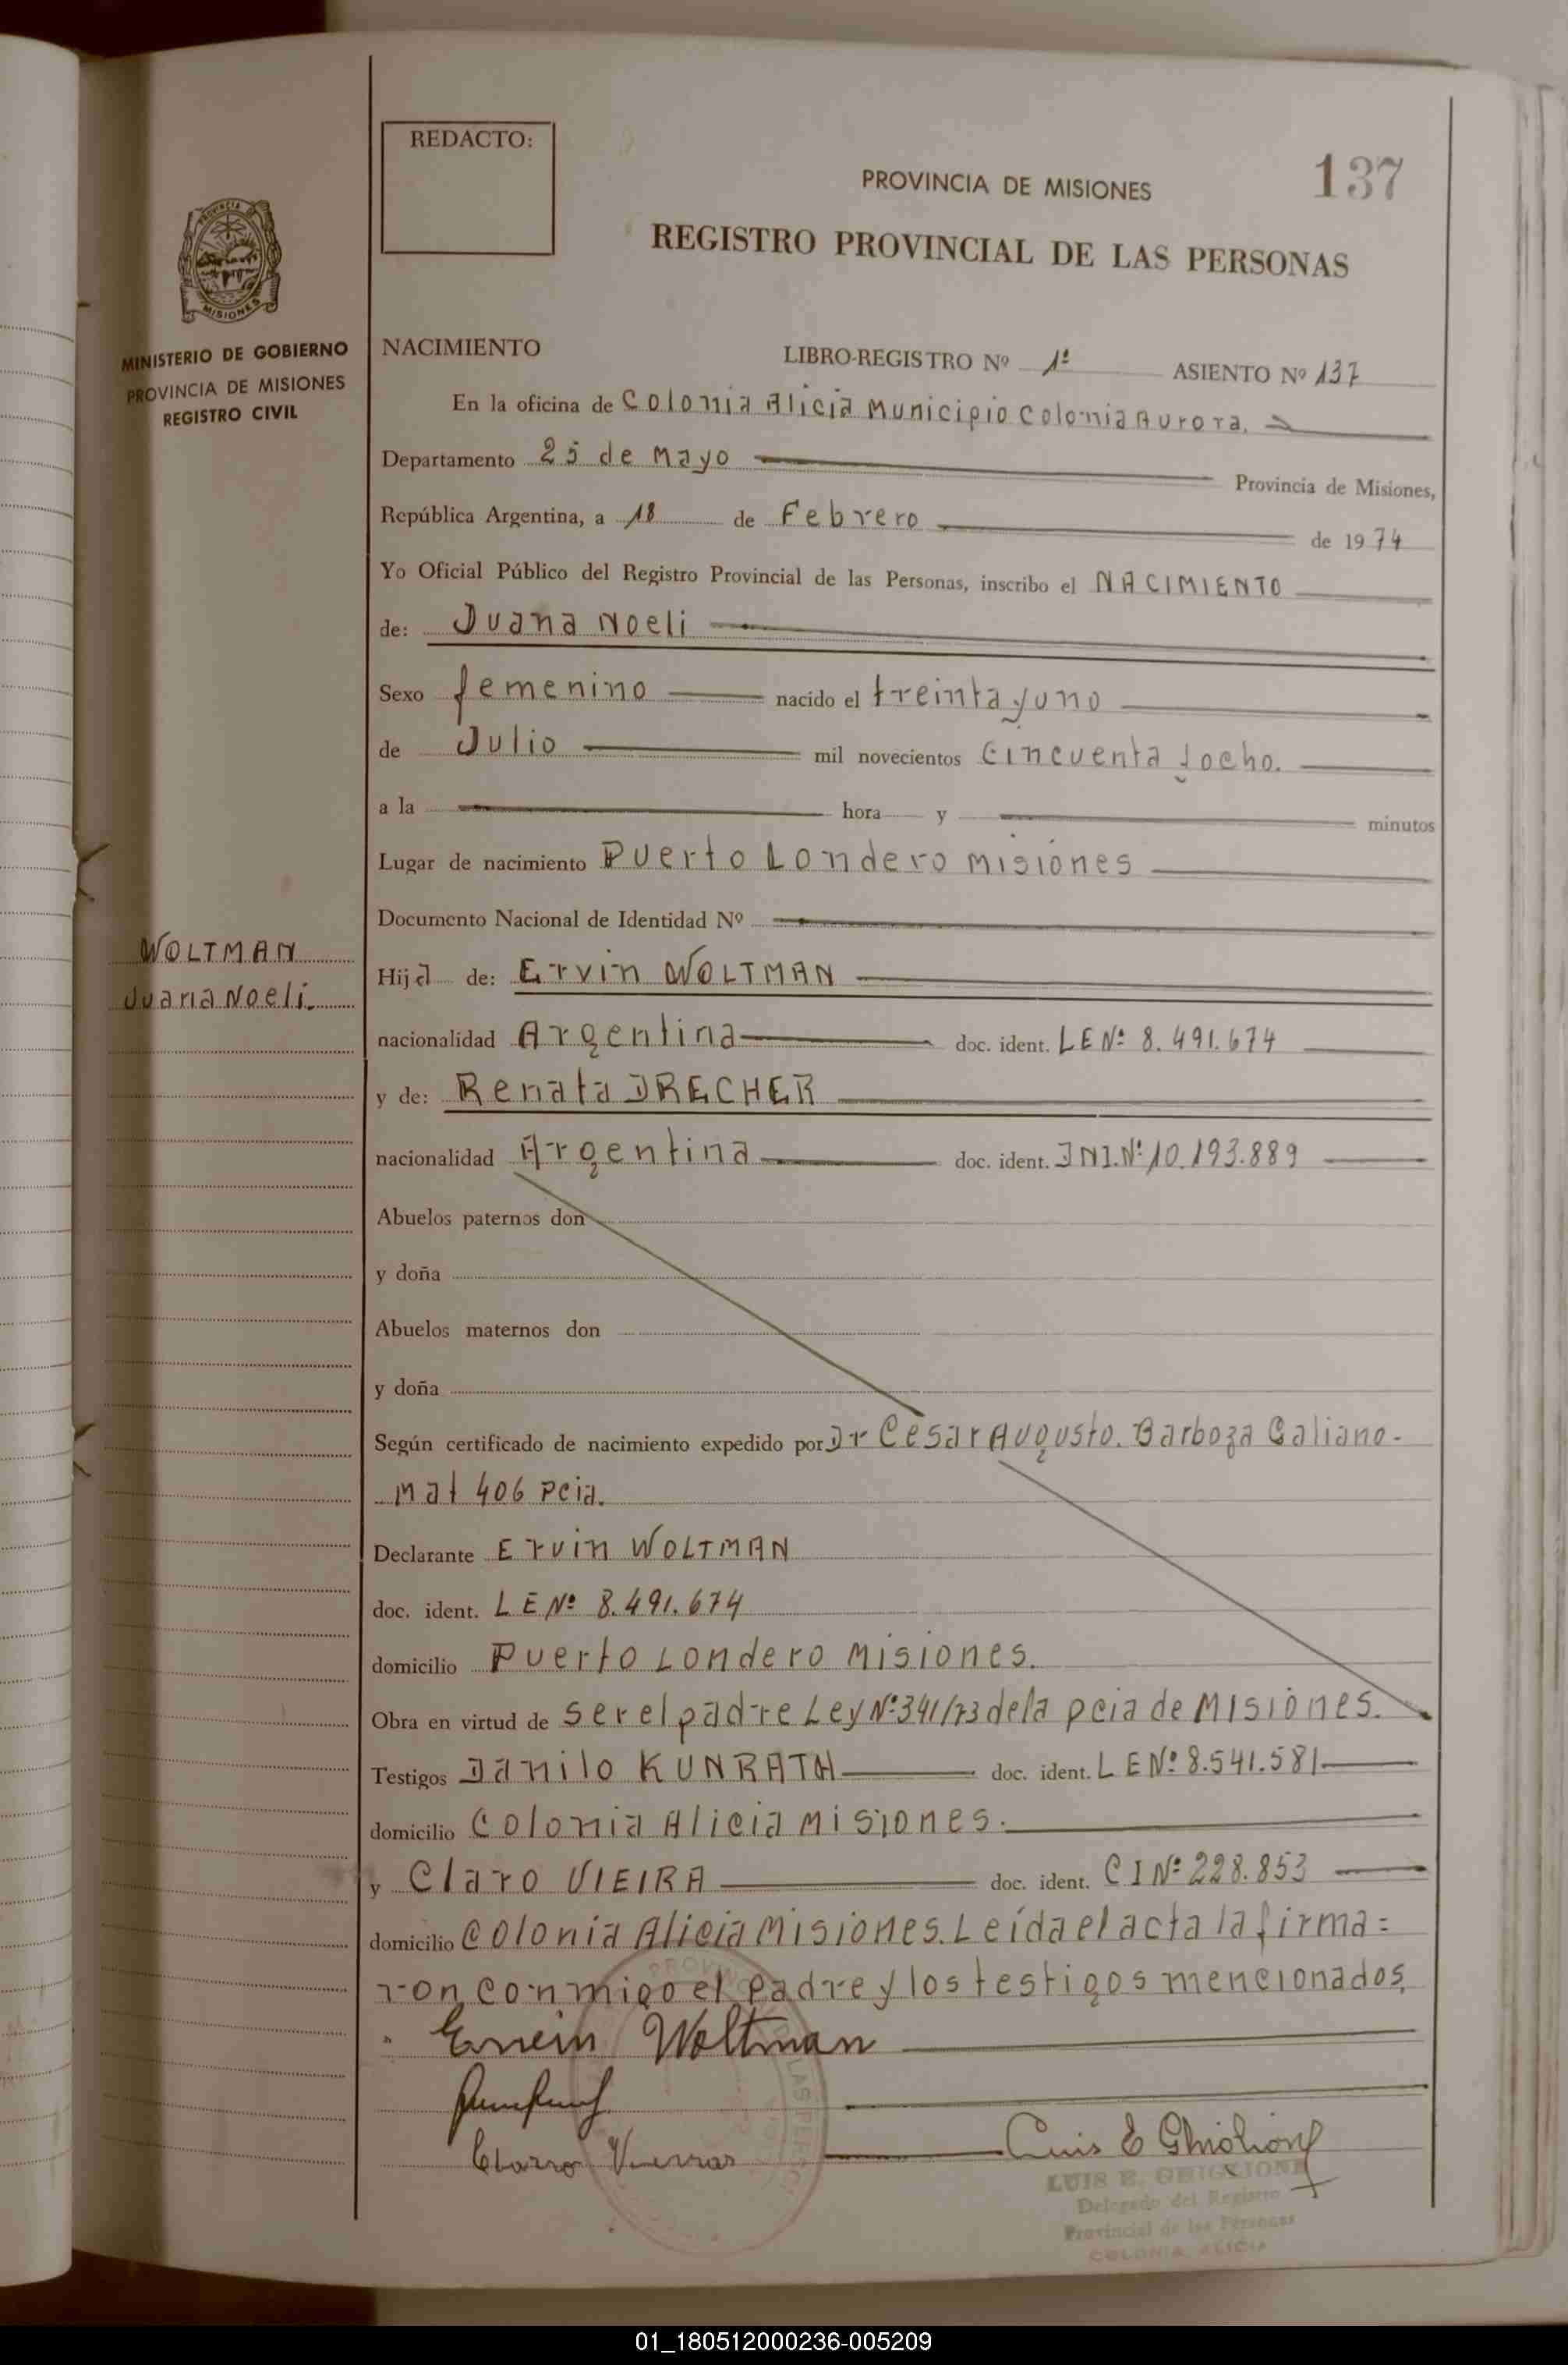 REDACTO:
137
PROVINCIA DE MISIONES
REGISTRO PROVINCIAL DE LAS PERSONAS
PROVINCIA DE
MISIONES
MINISTERIO DE GOBIERNO
PROVINCIA DE MISIONES
REGISTRO CIVIL
NACIMIENTO LIBRO-REGISTRO Nº 1º ASIENTO Nº 137
En la oficina de Colonia Alicia Municipio Colonia Aurora.
Departamento 25 de Mayo Provincia de Misiones,
República Argentina, a 18 de Febrero de 1974
Yo Oficial Público del Registro Provincial de las Personas, inscribo el NACIMIENTO
de: Juana Noeli
Sexo femenino nacido el treinta y uno
de Julio mil novecientos cincuenta y ocho.
a la hora y minutos
Lugar de nacimiento Puerto Londero Misiones
Documento Nacional de Identidad Nº
WOLTMAN
Juana Noeli.
Hija de: Ervin WOLTMAN
nacionalidad Argentina doc. ident. LE Nº 8.491.674
y de: Renata DRECHER
nacionalidad Argentina doc. ident. DNI. Nº 10.193.889
Abuelos paternos don
y doña
Abuelos maternos don
y doña
Según certificado de nacimiento expedido por Dr Cesar Augusto. Barboza Galiano-
Mat 406 Pcia.
Declarante Ervin WOLTMAN
doc. ident. LE Nº 8.491.674
domicilio Puerto Londero Misiones.
Obra en virtud de ser el padre Ley Nº 341/73 de la pcia de Misiones.
Testigos Danilo KUNRATH doc. ident. LE Nº 8.541.581
domicilio Colonia Alicia Misiones.
y Claro VIEIRA doc. ident. CI Nº 228.853
domicilio Colonia Alicia Misiones. Leída el acta la firma=
ron conmigo el Padre y los testigos mencionados.
Ervein Woltman
Luis E Ghiglione
LUIS E. GHIGLIONE
Delegado del Registro
Provincial de las Personas
COLONIA ALICIA
01_180512000236-005209